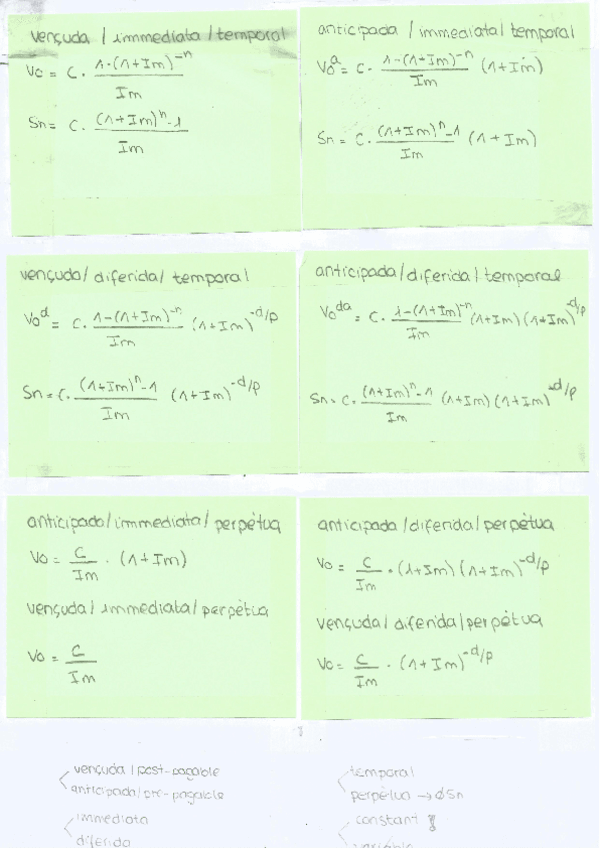 vençuda / immediata / temporal
Vo = C · 1-(1+Im)^-n / Im
Sn = C · (1+Im)^n - 1 / Im
anticipada / immediata / temporal
Vo^a = C · 1-(1+Im)^-n / Im (1+Im)
Sn = C · (1+Im)^n - 1 / Im (1+Im)
vençuda / diferida / temporal
Vo^d = C · 1-(1+Im)^-n / Im (1+Im)^-d/p
Sn = C · (1+Im)^n - 1 / Im (1+Im)^-d/p
anticipada / diferida / temporal
Vo^da = C · 1-(1+Im)^-n / Im (1+Im) (1+Im)^-d/p
Sn = C · (1+Im)^n - 1 / Im (1+Im) (1+Im)^-d/p
anticipada / immediata / perpètua
Vo = C / Im · (1+Im)
vençuda / immediata / perpètua
Vo = C / Im
anticipada / diferida / perpètua
Vo = C / Im · (1+Im) (1+Im)^-d/p
vençuda / diferida / perpètua
Vo = C / Im · (1+Im)^-d/p
vençuda / post-pagable
anticipada / pre-pagable
immediata
diferida
temporal
perpètua → ∅ Sn
constant
variable